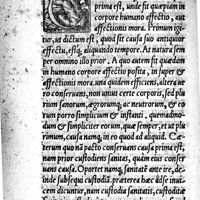 prima est, unde sit quæpiam in
corpore humano affectio, aut
affectionis mora. Primum igi
tur, ut dictum est, quod sit causa suo antiquior
effectu, estq; aliquando tempore. At natura sem
per omnino illo prior. A quo autem ut quædam
in humano corpore affectio posita, in super &
affectionis mora: una quidem efficiens, altera ue
ro conseruans, non unius certe corporis, sed plu
rium sanorum, ægrorumq; ac neutrorum, & eo
rum porro simplicium & instanti, quemadmo-
dum & simpliciter eorum, quæ semper, & ut plu
rimum, causa namq; in eo quod ad aliquid. Cæ-
terum quom nà pacto conseruans causa prima est,
nam prior custodiens sanitas, quàm eius conser
uans causa. Oportet namq; sanitatē ante ire, de-
inde subseque custodiā. præterea hæc ideo inuē
cem dicuntur, nam custodia sanitatis, custodita